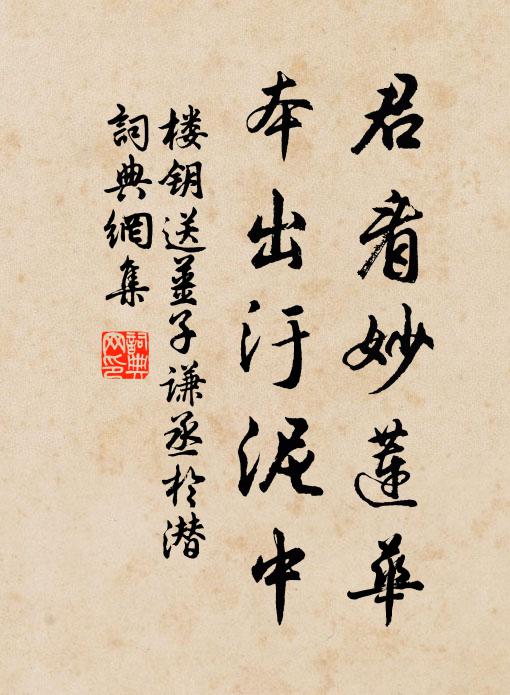 君看妙蓮華
本出汙泥中
楼鑰送姜子谦丞於潜
詞典網集
詞典网印